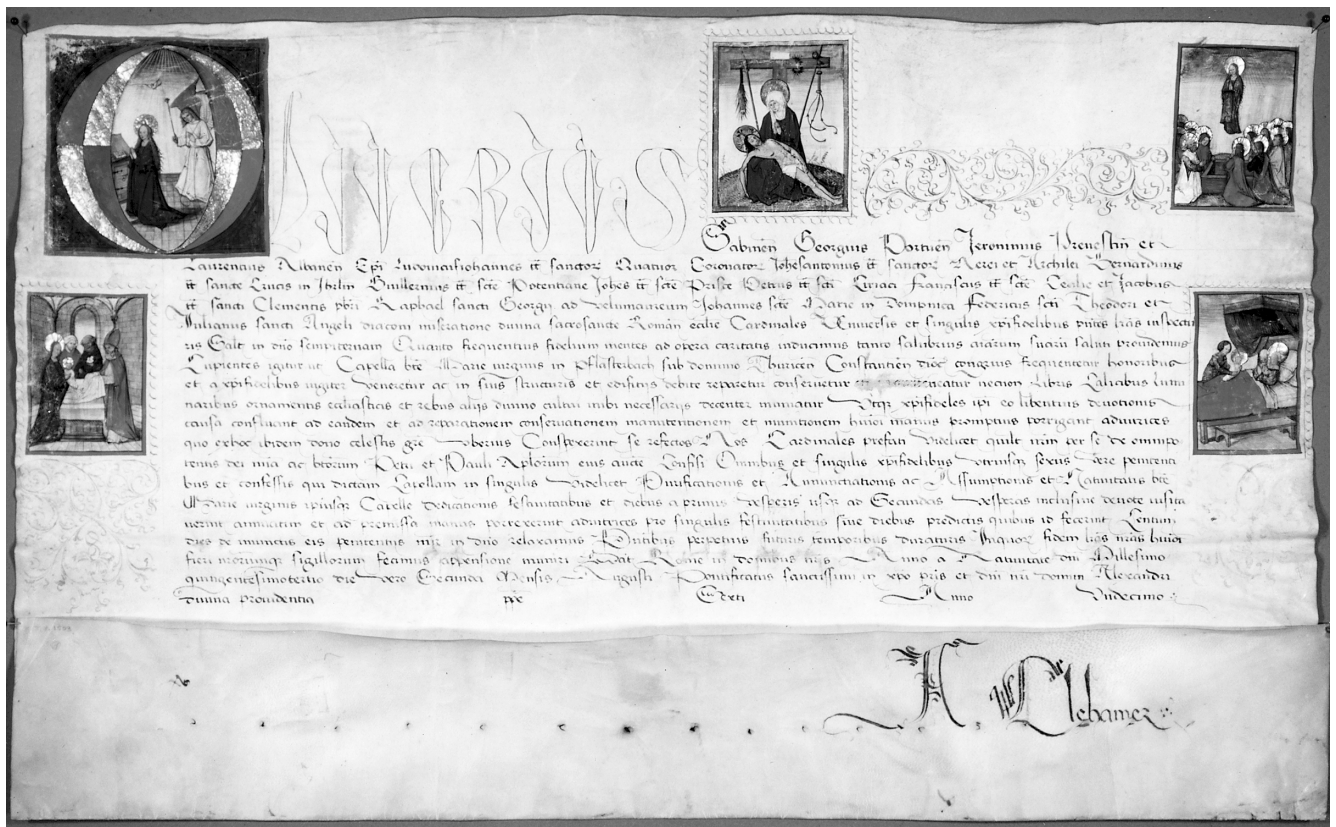 OLIVERIUS
Sabinen Georgius Portuen Jeronimus Prenestin et
Laurentius Albanen Epi Johannes tt sanctor Quatuor Coronator Johesantonius tt sanctor Nerei et Archilei Bernardinus
tt sancte Crucis in Jhrlm Guillermus tt scte Potentiane Johes tt scte Prisce Petrus tt scti Ciriaci Franciscus tt scte Cecilie et Jacobus
tt sancti Clementis pbri Raphael sancti Georgii ad velumaureum Johannes scte Marie in Dompnica Federicus scti Theodori et
Julianus sancti Angeli diaconi miseratione divina sacrosancte Roman ecclie Cardinales Universis et singulis xpifidelibus pntes lras inspectu
ris Salt in dno sempiternam Quanto frequentius fidelium mentes ad opera caritatis inducimus tanto salubrius aiarum suaru saluti providemus
Cupientes igitur ut Capella bte Marie virginis in Pflasterbach sub dominio Thuricen Constantien dioc congruis frequentetur honoribus
et a xpifidelibus iugiter veneretur ac in suis structuris et edificiis debite reparetur conservetur et neatur necnon libris Calicibus lumi
naribus ornamentis ecclasticis et rebus aliis divino cultui inibi necessariis decenter muniatur Utqz xpifideles ipi eo libentius devotionis
causa confluant ad eandem et ad reparationem conservationem manutentionem et munitionem huiusmoi manus promptius porrigant adiutrices
quo exhoc ibidem dono celestis gre uberius Conspexerint se refectos Nos Cardinales prefati videlicet quilt nrm per se de omnipo
tentis dei mia ac btorum Petri et Pauli Aplorum eius aucte Confisi Omnibus et singulis xpifidelibus utriusqz sexus vere peniten
bus et confessis qui dictam Capellam in singulis videlicet Purificationis et Annunciationis ac Assumptionis et Nativitatis bte
Marie virginis ipiusqz Capelle Dedicationis festivitatibus et diebus a primis vesperis usqz ad Secundas vesperas inclusive devote visita
verint annuatim et ad premissa manus porrexerint adiutrices pro singulis festivitatibus sive diebus predictis quibus id fecerint Centum
dies de iniunctis eis penitentiis mir in dno relaxamus Pntibus perpetuis futuris temporibus duraturis Inquor fidem lras nras huiusmoi
fieri nrorumqz sigillorum fecimus appensione muniri Dat Rome in domibus nris Anno a Nativitate dni Millesimo
quingentesimotertio die vero Secunda Mensis Augusti Pontificatus sanctissimi in xpo pris et dni nri domini Alexandri
divina providentia ppe Sexti Anno Undecimo